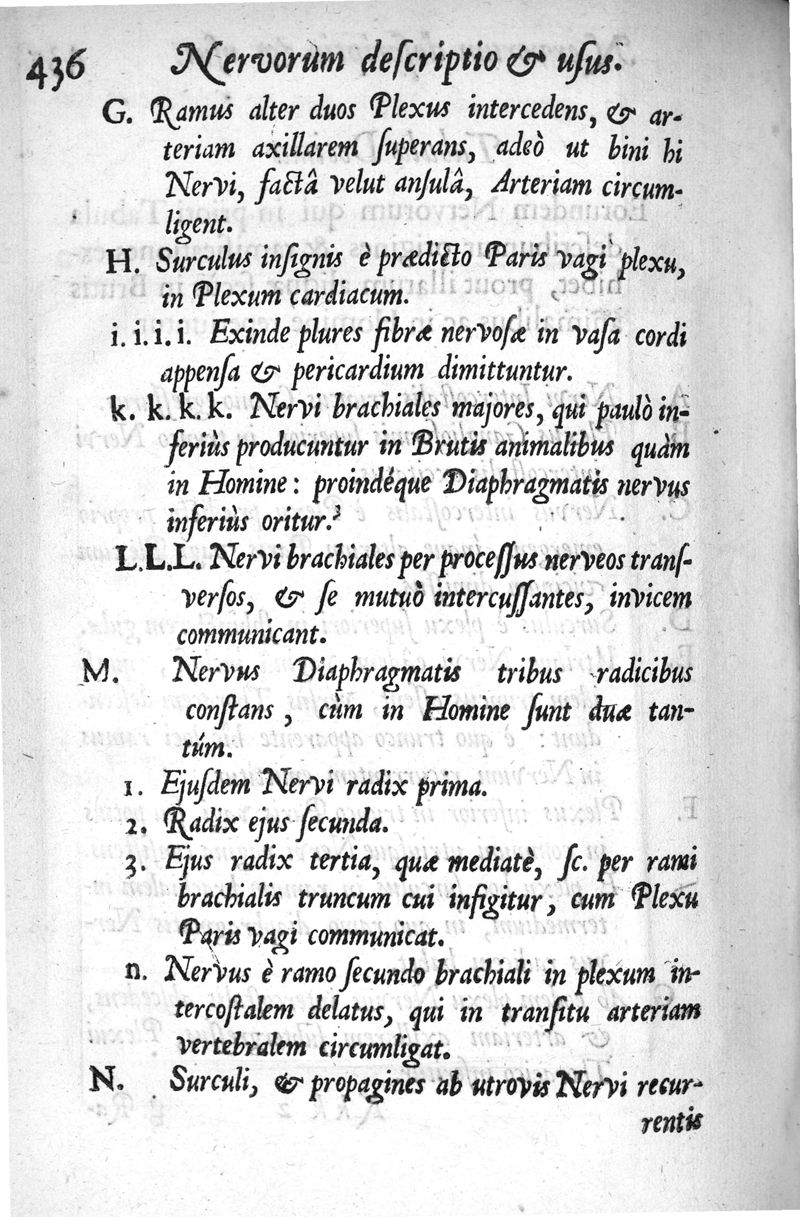 436 Nervorum deſcriptio & uſus.
G. Ramus alter duos Plexus intercedens, & ar-
teriam axillarem ſuperans, adeò ut bini hi
Nervi, factâ velut anſulâ, Arteriam circum-
ligent.
H. Surculus inſignis è prædicto Paris vagi plexu,
in Plexum cardiacum.
i. i. i. i. Exinde plures fibræ nervoſæ in vaſa cordi
appenſa & pericardium dimittuntur.
k. k. k. k. Nervi brachiales majores, qui paulò in-
feriùs producuntur in Brutis animalibus quàm
in Homine: proindéque Diaphragmatis nervus
inferiùs oritur.
L.L.L. Nervi brachiales per proceſſus nerveos tranſ-
verſos, & ſe mutuò intercuſſantes, invicem
communicant.
M. Nervus Diaphragmatis tribus radicibus
conſtans, cùm in Homine ſunt duæ tan-
túm.
1. Ejuſdem Nervi radix prima.
2. Radix ejus ſecunda.
3. Ejus radix tertia, quæ mediatè, ſc. per rami
brachialis truncum cui infigitur, cum Plexu
Paris vagi communicat.
n. Nervus è ramo ſecundo brachiali in plexum in-
tercoſtalem delatus, qui in tranſitu arteriam
vertebralem circumligat.
N. Surculi, & propagines ab utrovis Nervi recur-
rentis